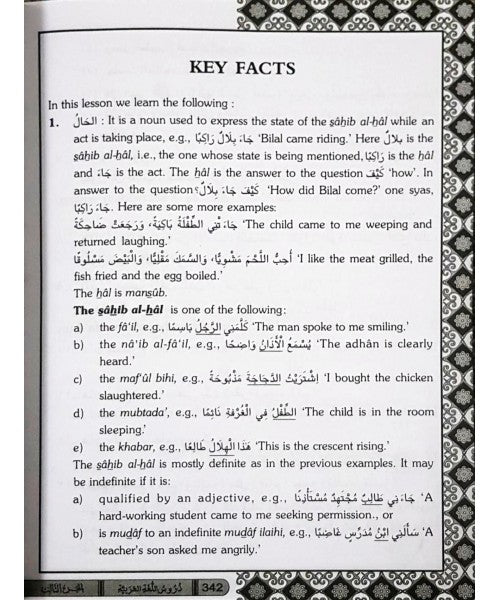 KEY FACTS
In this lesson we learn the following :
1. الحَالُ : It is a noun used to express the state of the ṣâḥib al-ḥâl while an
act is taking place, e.g., جَاءَ بِلَالٌ رَاكِبًا ‘Bilal came riding.’ Here بِلالٌ is the
ṣâḥib al-ḥâl, i.e., the one whose state is being mentioned, رَاكِبًا is the ḥâl
and جَاءَ is the act. The ḥâl is the answer to the question كَيْفَ ‘how’. In
answer to the question كَيْفَ جَاءَ بِلَالٌ؟ ‘How did Bilal come?’ one syas,
جَاءَ رَاكِبًا. Here are some more examples:
جَاءَ تْنِي الطِّفْلَةُ بَاكِيَةً، وَرَجَعَتْ ضَاحِكَةً ‘The child came to me weeping and
returned laughing.’
أُحِبُّ اللَّحْمَ مَشْوِيًّا، وَالسَّمَكَ مَقْلِيًّا، وَالْبَيْضَ مَسْلُوقًا ‘I like the meat grilled, the
fish fried and the egg boiled.’
The ḥâl is manṣûb.
The ṣâḥib al-ḥâl is one of the following:
a) the fâ‘il, e.g., كَلَّمَنِي الرَّجُلُ بَاسِمًا ‘The man spoke to me smiling.’
b) the nâ’ib al-fâ‘il, e.g., يُسْمَعُ الْأَذَانُ وَاضِحًا ‘The adhân is clearly
heard.’
c) the maf‘ûl bihi, e.g., اِشْتَرَيْتُ الدَّجَاجَةَ مَذْبُوحَةً ‘I bought the chicken
slaughtered.’
d) the mubtada’, e.g., الطِّفْلُ فِي الْغُرْفَةِ نَائِمًا ‘The child is in the room
sleeping.’
e) the khabar, e.g., هَذَا الْهِلَالُ طَالِعًا ‘This is the crescent rising.’
The ṣâḥib al-ḥâl is mostly definite as in the previous examples. It may
be indefinite if it is:
a) qualified by an adjective, e.g., جَاءَ نِي طَالِبٌ مُجْتَهِدٌ مُسْتَأْذِنًا ‘A
hard-working student came to me seeking permission., or
b) is muḍâf to an indefinite muḍâf ilaihi, e.g., سَأَلَنِي ابْنُ مُدَرِّسٍ غَاضِبًا ‘A
teacher’s son asked me angrily.’
الجزء الثالث دُرُوسُ اللُّغَةِ العَرَبِيَّةِ 342